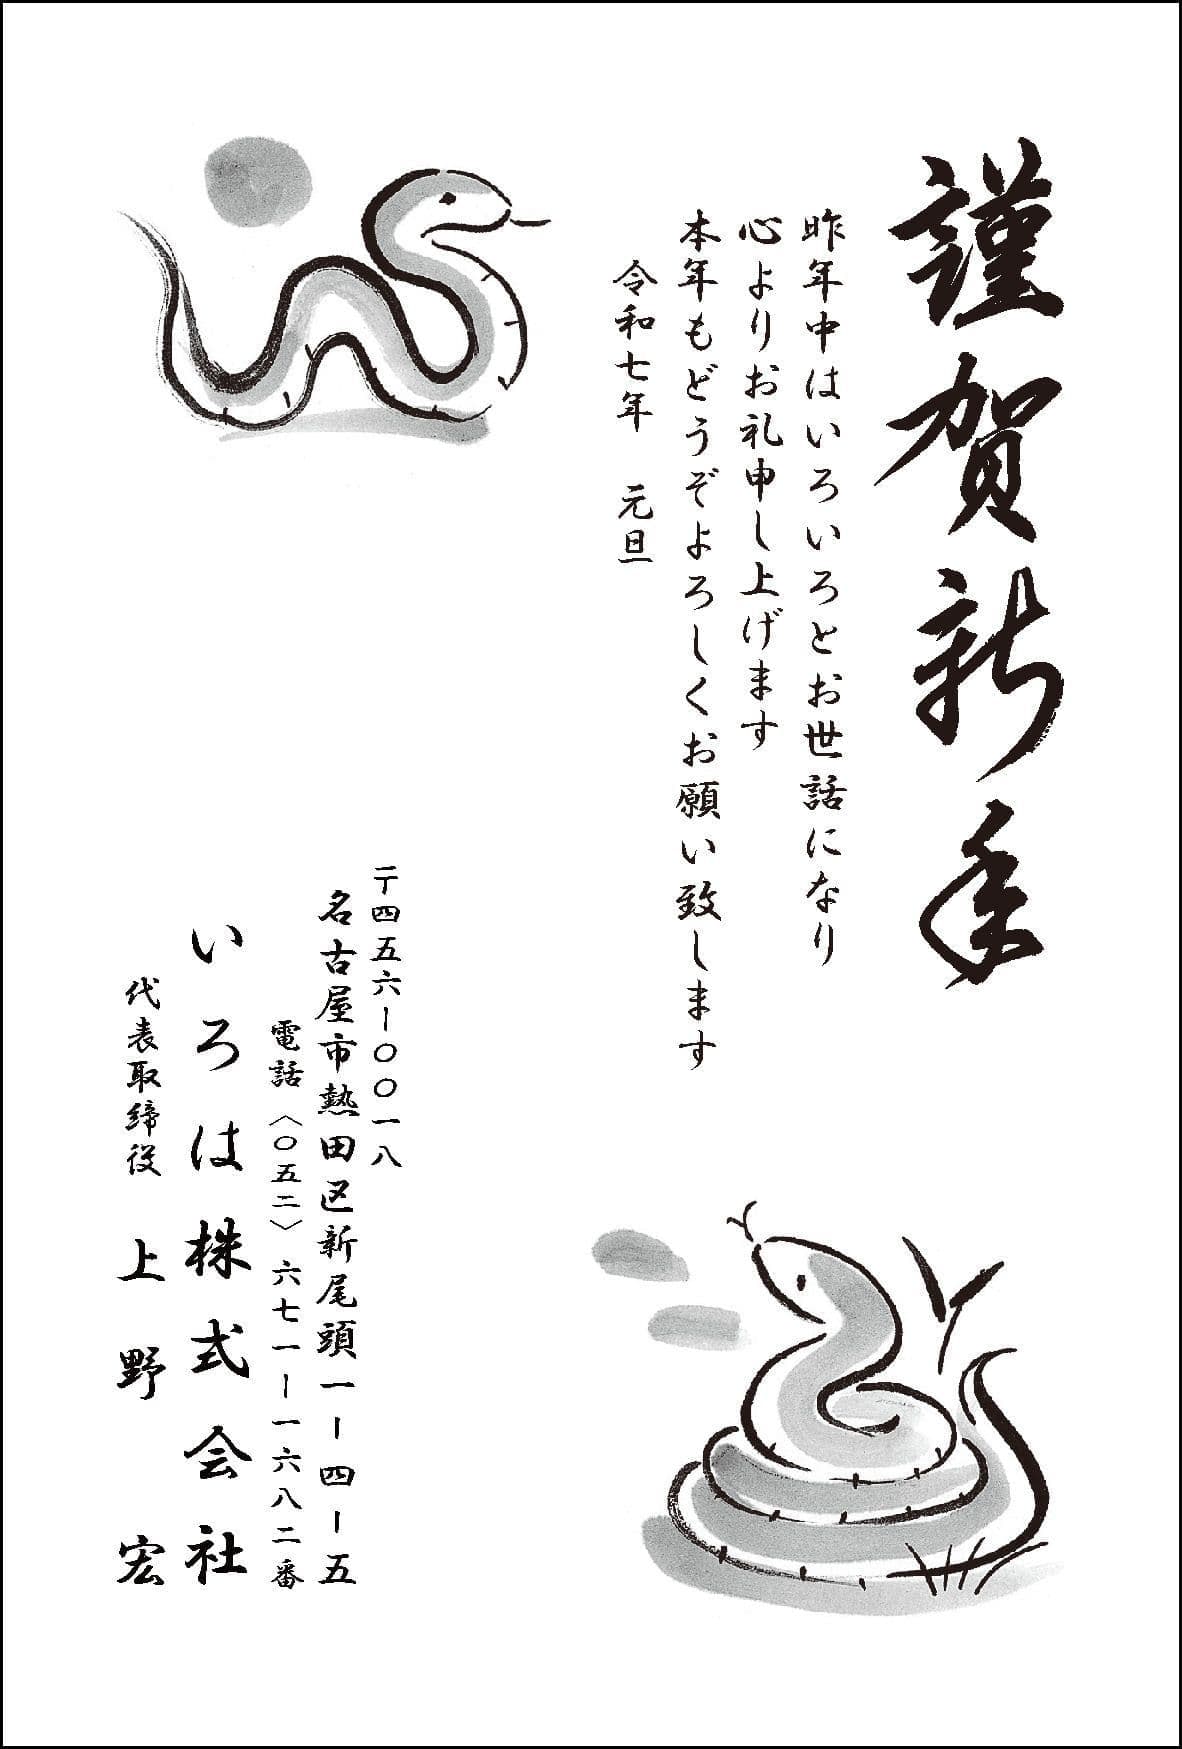 謹賀新年
昨年中はいろいろとお世話になり
心よりお礼申し上げます
本年もどうぞよろしくお願い致します
令和七年　元旦
〒四五六ー〇〇一八
名古屋市熱田区新尾頭一ー四ー五
電話〈〇五二〉六七一ー一六八二番
いろは株式会社
代表取締役　上野　宏